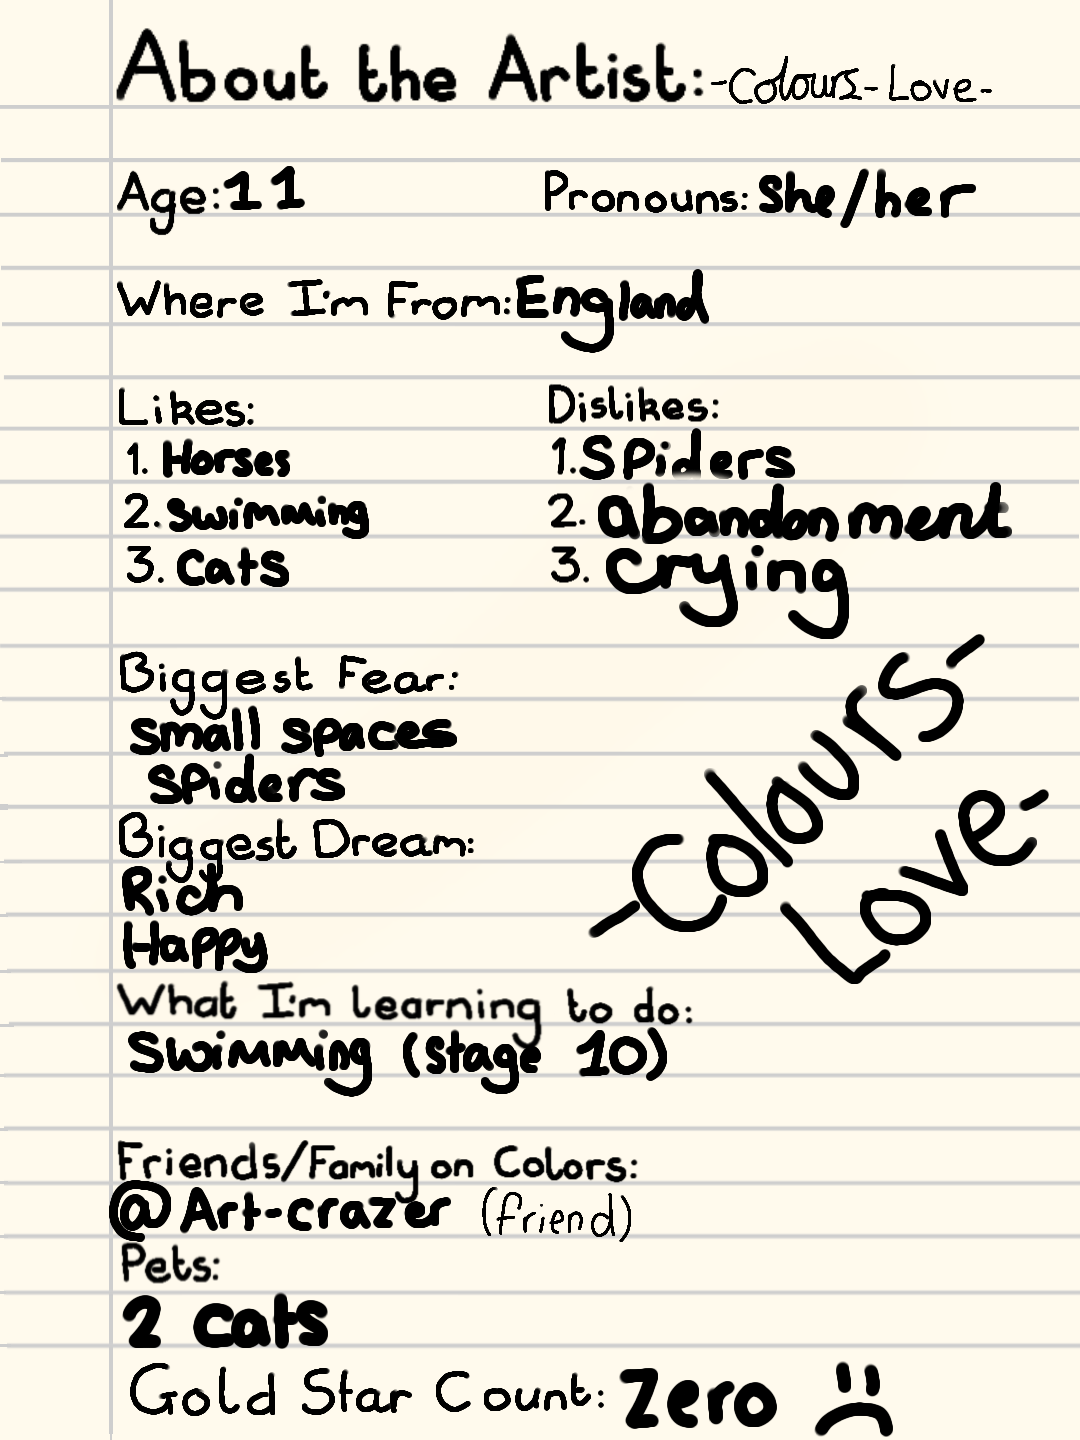 About the Artist: -Colours-Love-
Age: 11 Pronouns: she/her
Where I'm From: England
Likes: Dislikes:
1. Horses 1. Spiders
2. swimming 2. abandonment
3. cats 3. crying
Biggest Fear:
small spaces
spiders
Biggest Dream:
Rich
Happy
-Colours-
Love-
What I'm learning to do:
Swimming (stage 10)
Friends/Family on Colors:
@Art-crazer (friend)
Pets:
2 cats
Gold Star Count: Zero